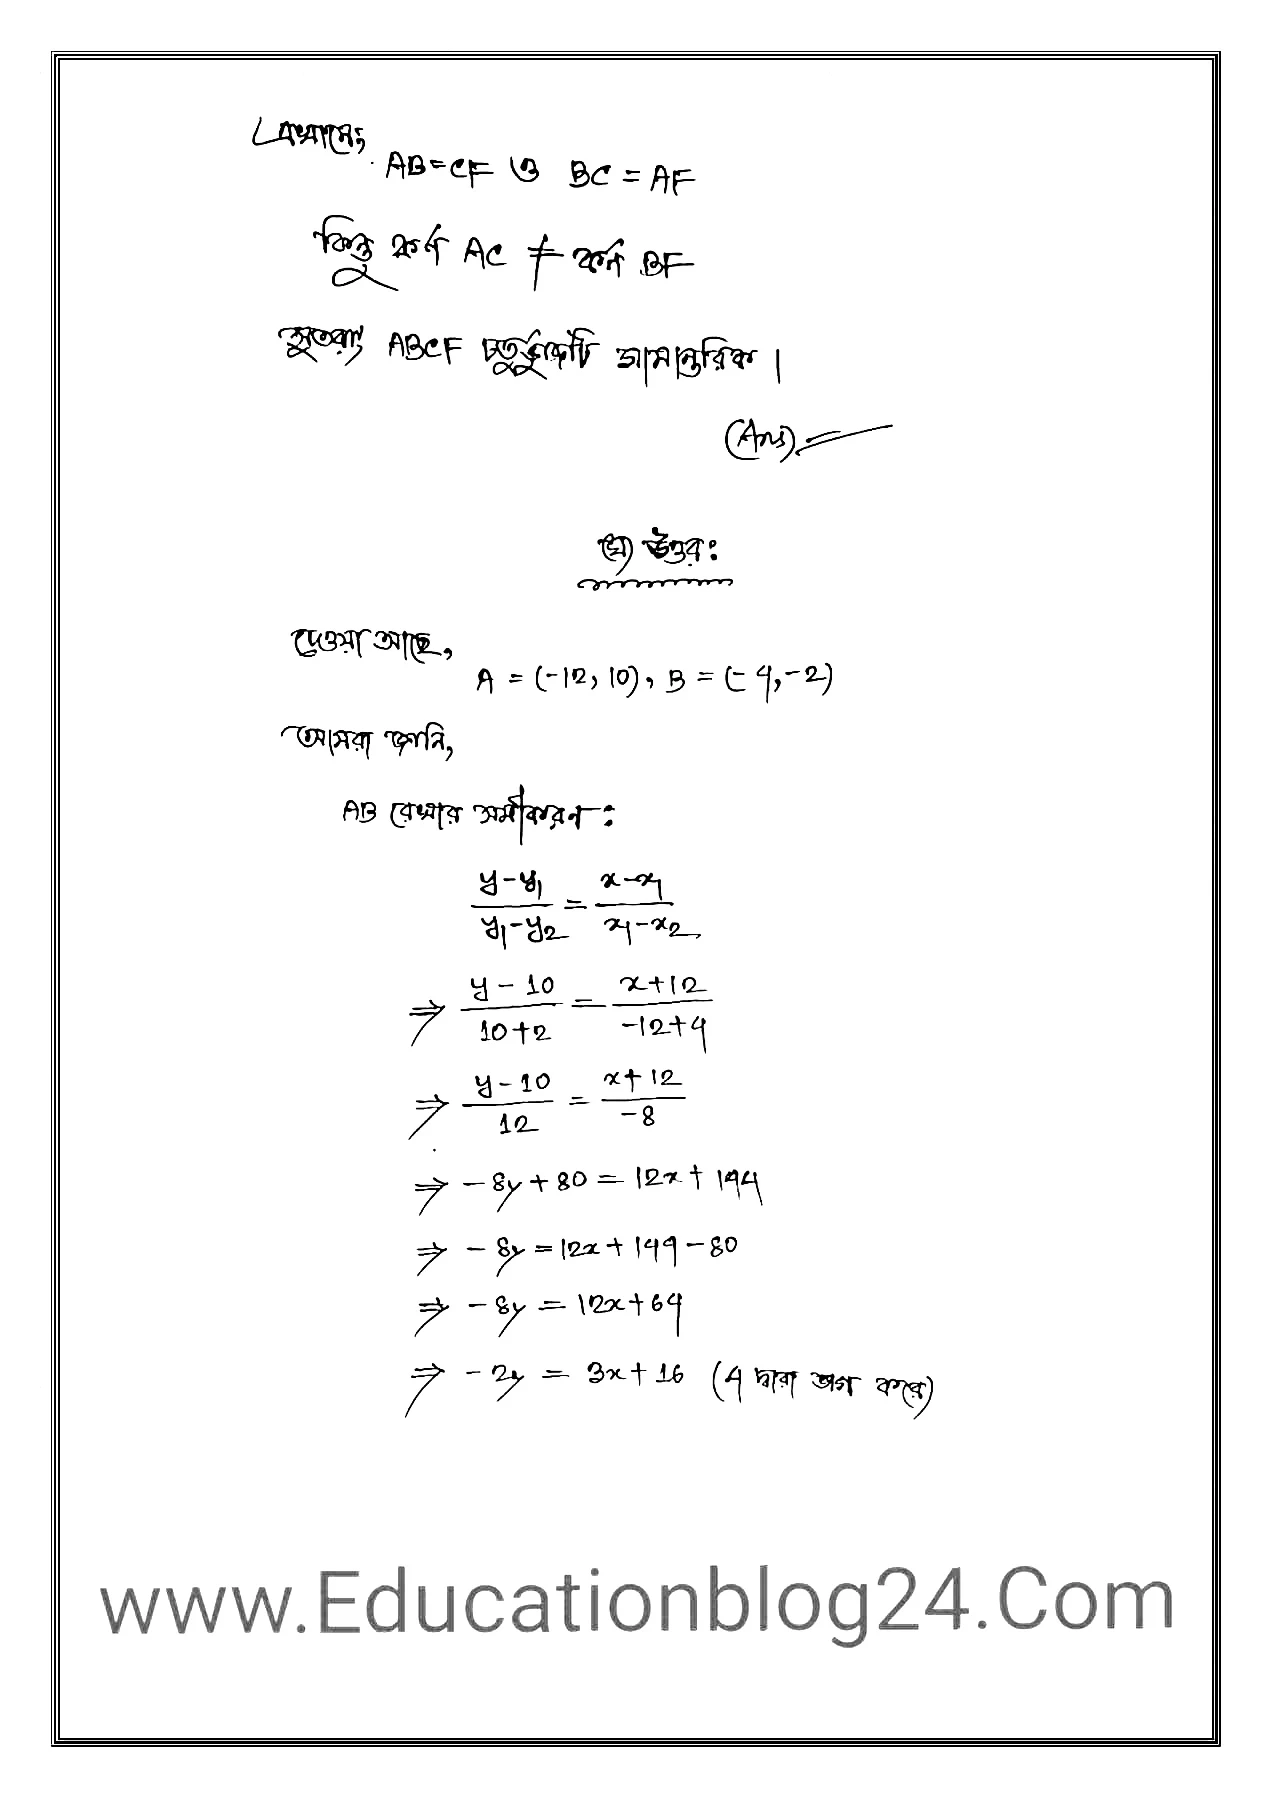 এখানে,
AB = CF ও BC = AF
কিন্তু কর্ণ AC ≠ কর্ণ BF
সুতরাং ABCF চতুর্ভুজটি সামান্তরিক।
(Ans)
(ঘ) উত্তর:
দেওয়া আছে,
A = (-12, 10), B = (-4, -2)
আমরা জানি,
AB রেখার সমীকরণ:
(y-y₁)/(y₁-y₂) = (x-x₁)/(x₁-x₂)
⇒ (y-10)/(10+2) = (x+12)/(-12+4)
⇒ (y-10)/12 = (x+12)/-8
⇒ -8y+80 = 12x+144
⇒ -8y = 12x+144-80
⇒ -8y = 12x+64
⇒ -2y = 3x+16 (4 দ্বারা ভাগ করে)
www.Educationblog24.Com